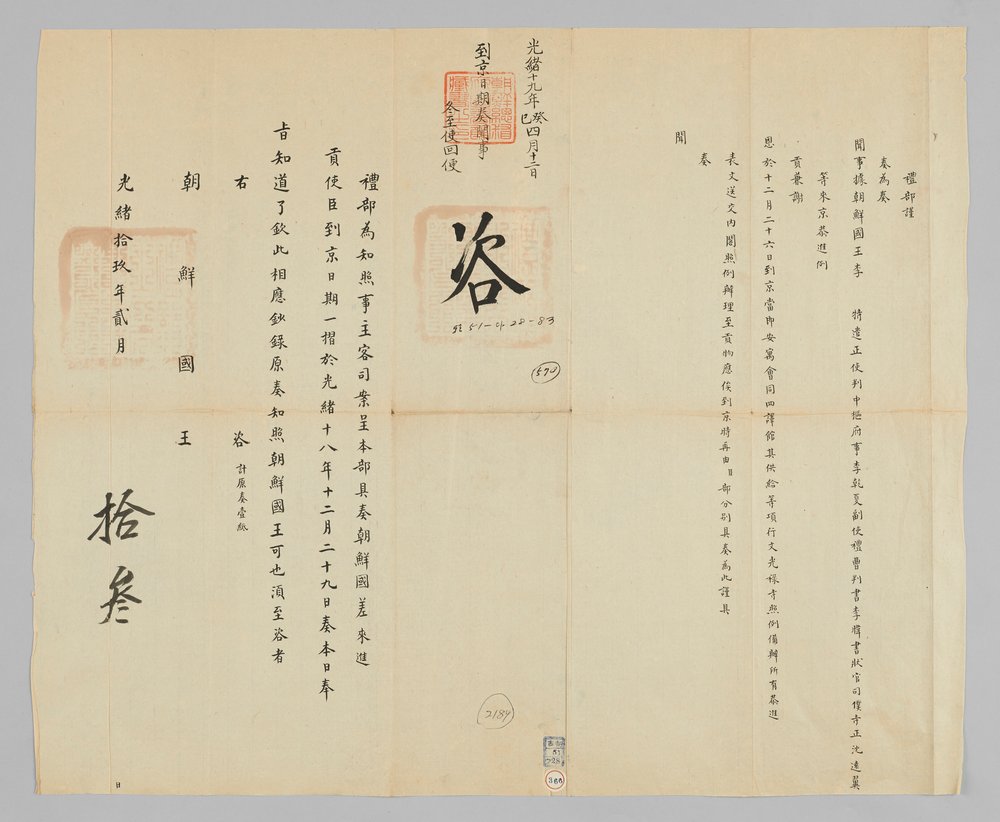 禮部謹
奏為奏
聞事據朝鮮國王李　特遣正使判中樞府事李乾夏副使禮曹判書李暐書狀官司僕寺正沈遠翼
等來京恭進例
貢兼謝
恩於十二月二十六日到京當即安寓會同四譯館其供給等項行文光祿寺照例備辦所有恭進
表文送交內閣照例辦理至貢物應俟到京時再由臣部分別具奏為此謹具
奏
聞
光緒十九年癸巳四月十二日
到京日期奏聞事
冬至使回便
咨
51-
28-83
578
禮部為知照事主客司案呈本部具奏朝鮮國差來進
貢使臣到京日期一摺於光緒十八年十二月二十九日奏本日奉
旨知道了欽此相應鈔錄原奏知照朝鮮國王可也須至咨者
右　咨　計原奏壹紙
朝鮮國王
光緒拾玖年貳月　日
拾叁
2184
51
28
366